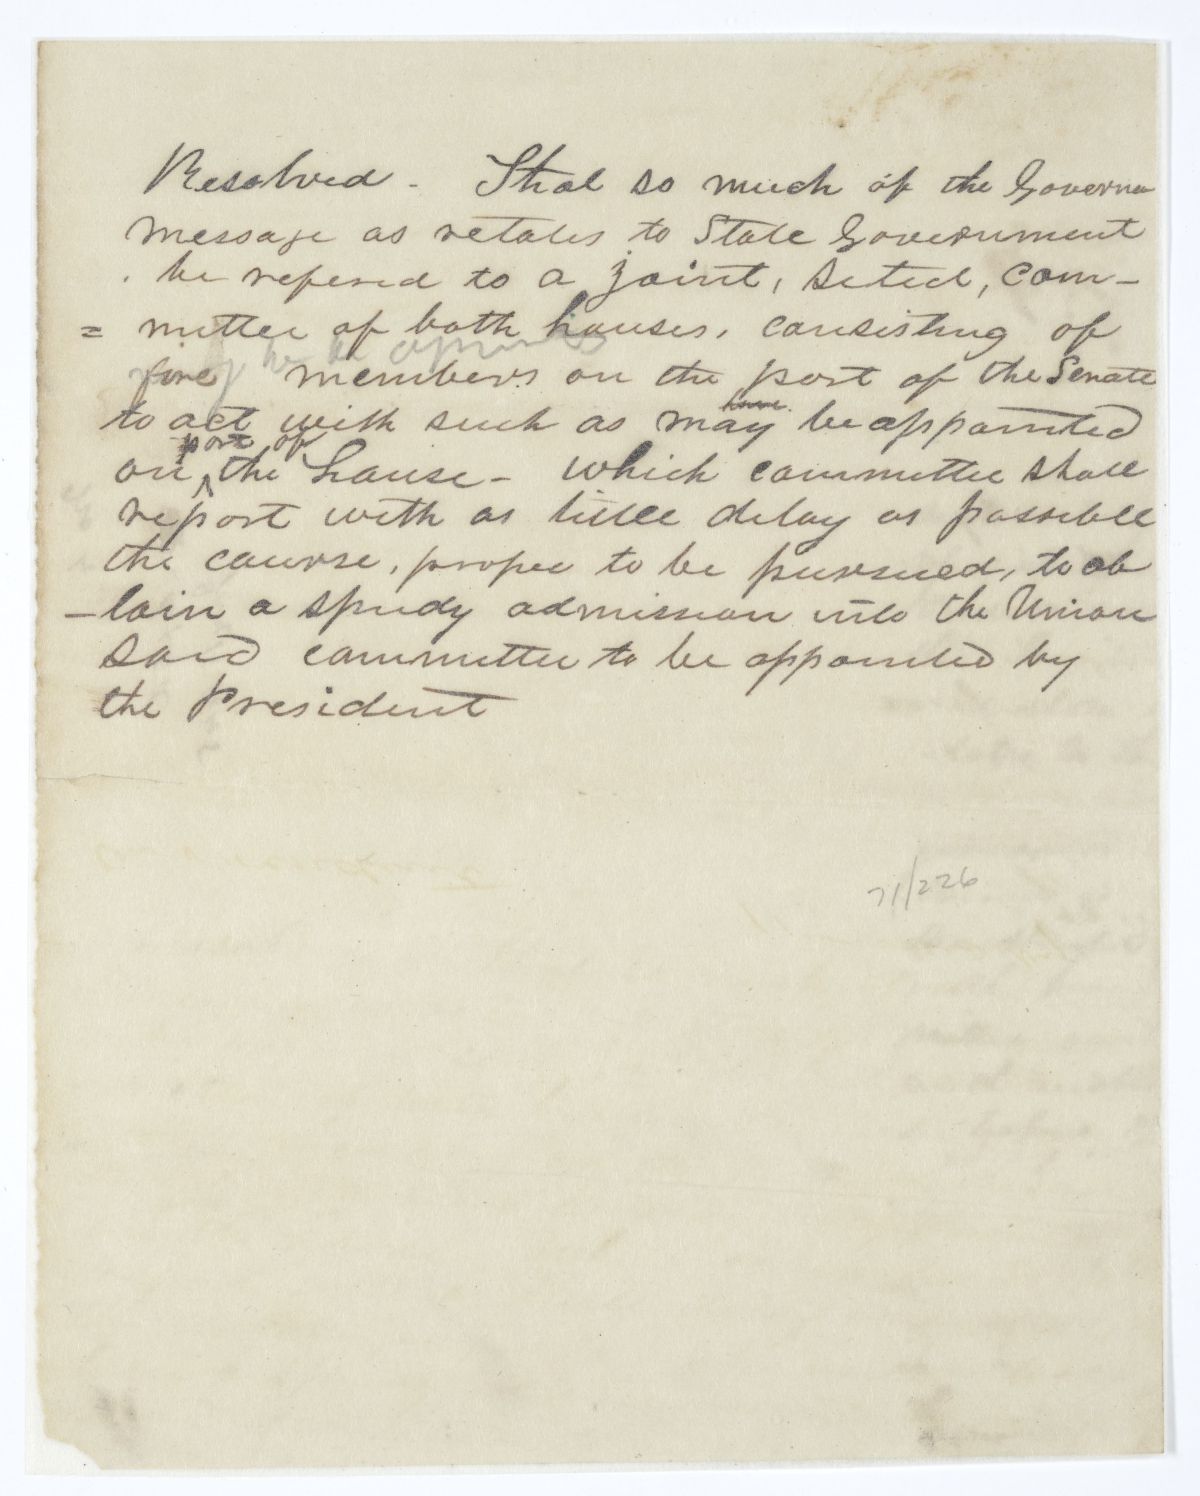 Resolved - That so much of the Governor
message as relates to State Government
. be refered to a joint, seled, com-
= mittee of both houses, consisting of
to be appointed
five members on the part of the Senate
have
to act with such as may be appointed
part of
on ^ the house - which committee shall
report with as little delay as possible
the course, proper to be pursued, to ob
-tain a speedy admission into the Union
said committee to be appointed by
the President
71/226